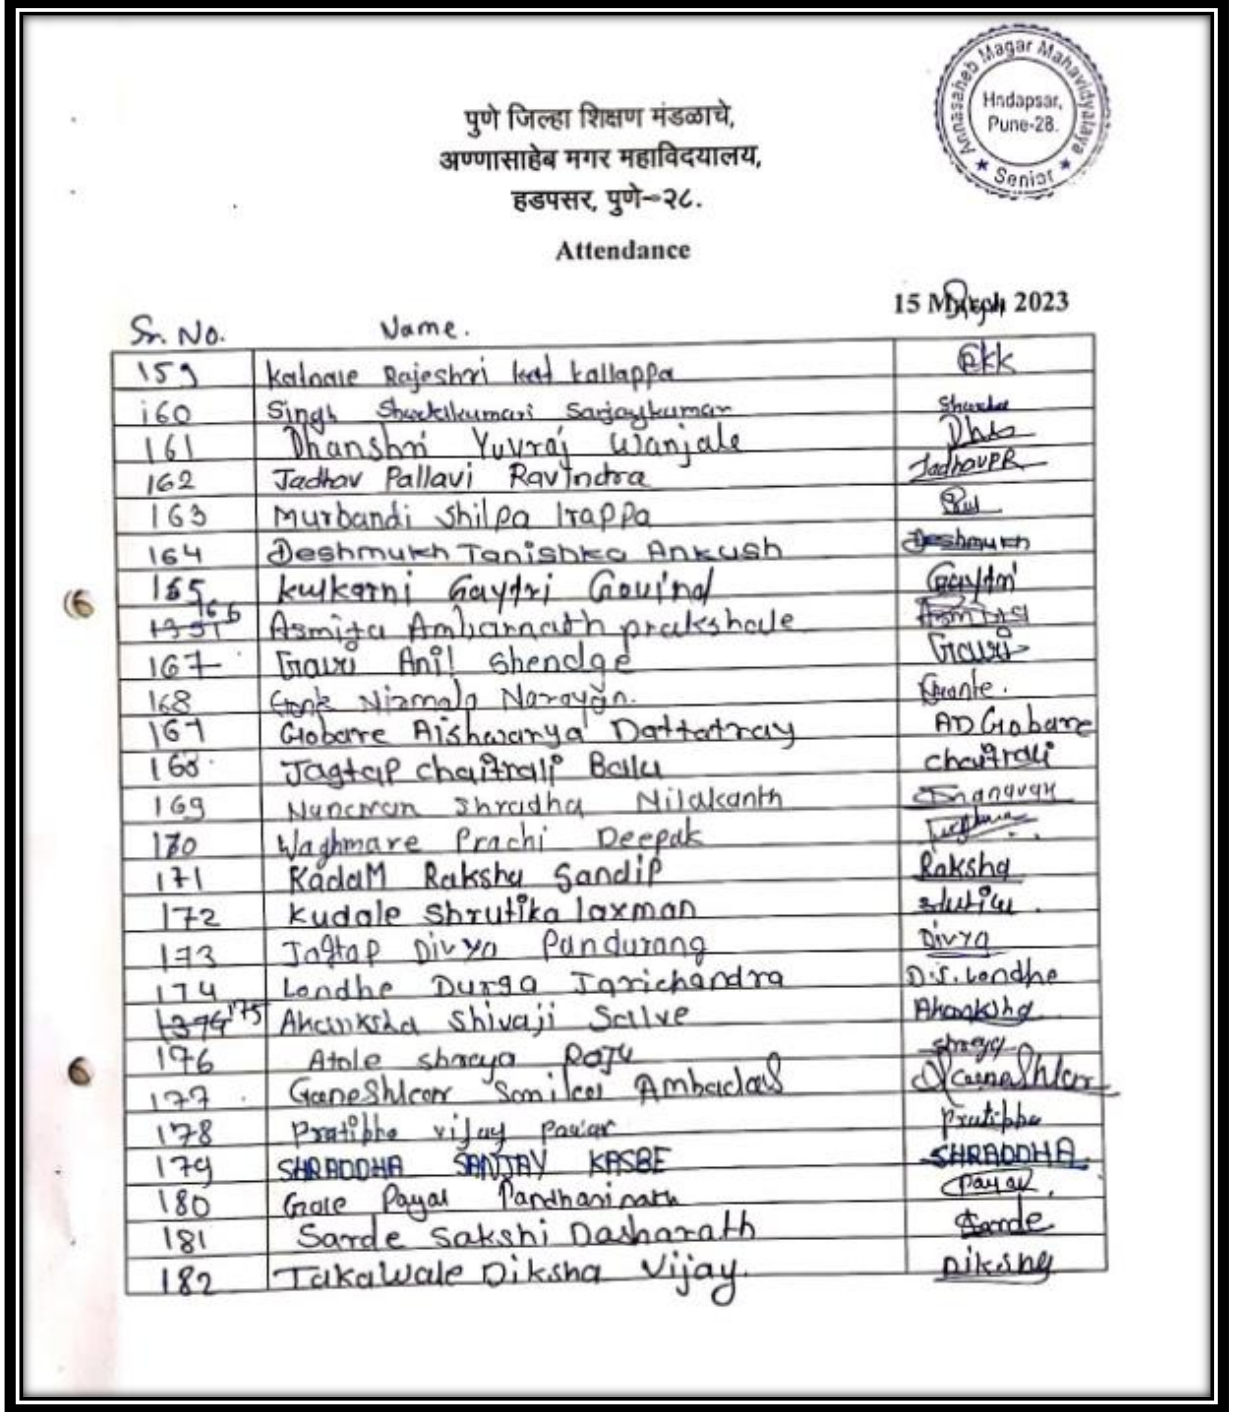 Annasaheb Magar Mahavidyalaya
Hadapsar,
Pune-28.
★ Senior ★
पुणे जिल्हा शिक्षण मंडळाचे,
अण्णासाहेब मगर महाविदयालय,
हडपसर, पुणे-२८.
Attendance
15 March 2023
Sr. No. Name. Sign
159 Kalnale Rajeshri kallappa @kk
160 Singh Shaktikumari Sanjaykumar
161 Dhanshri Yuvraj Wanjale
162 Jadhav Pallavi Ravindra JadhavPR
163 Murbandi Shilpa Irappa
164 Deshmukh Tanishka Ankush Deshmukh
165 Kulkarni Gaytri Govind Gaytri
166 Asmita Ambarnath prakshale Asmita
167 Gauri Anil Shendge Gauri
168 Nirmala Narayan.
167 Gobare Aishwarya Dattatray AD Gobare
168. Jagtap Chaitrali Balu Chaitrali
169 Shradha Nilakanth
170 Waghmare Prachi Deepak
171 KadaM Raksha Sandip Raksha
172 Kudale Shrutika laxman
173 Jagtap Divya Pandurang Divya
174 Londhe Durga D.J. Londhe
175 Akanksha Shivaji Salve Akanksha
176 Atole shreya Raju
177 Ambadas
178 Pratibha vijay Pawar Pratibha
179 SHRADDHA SANJAY KASBE SHRADDHA
180 Gole Payal Pandharinath Payal
181 Sarde Sakshi Dasharath Sarde
182 TakaWale Diksha Vijay. Diksha